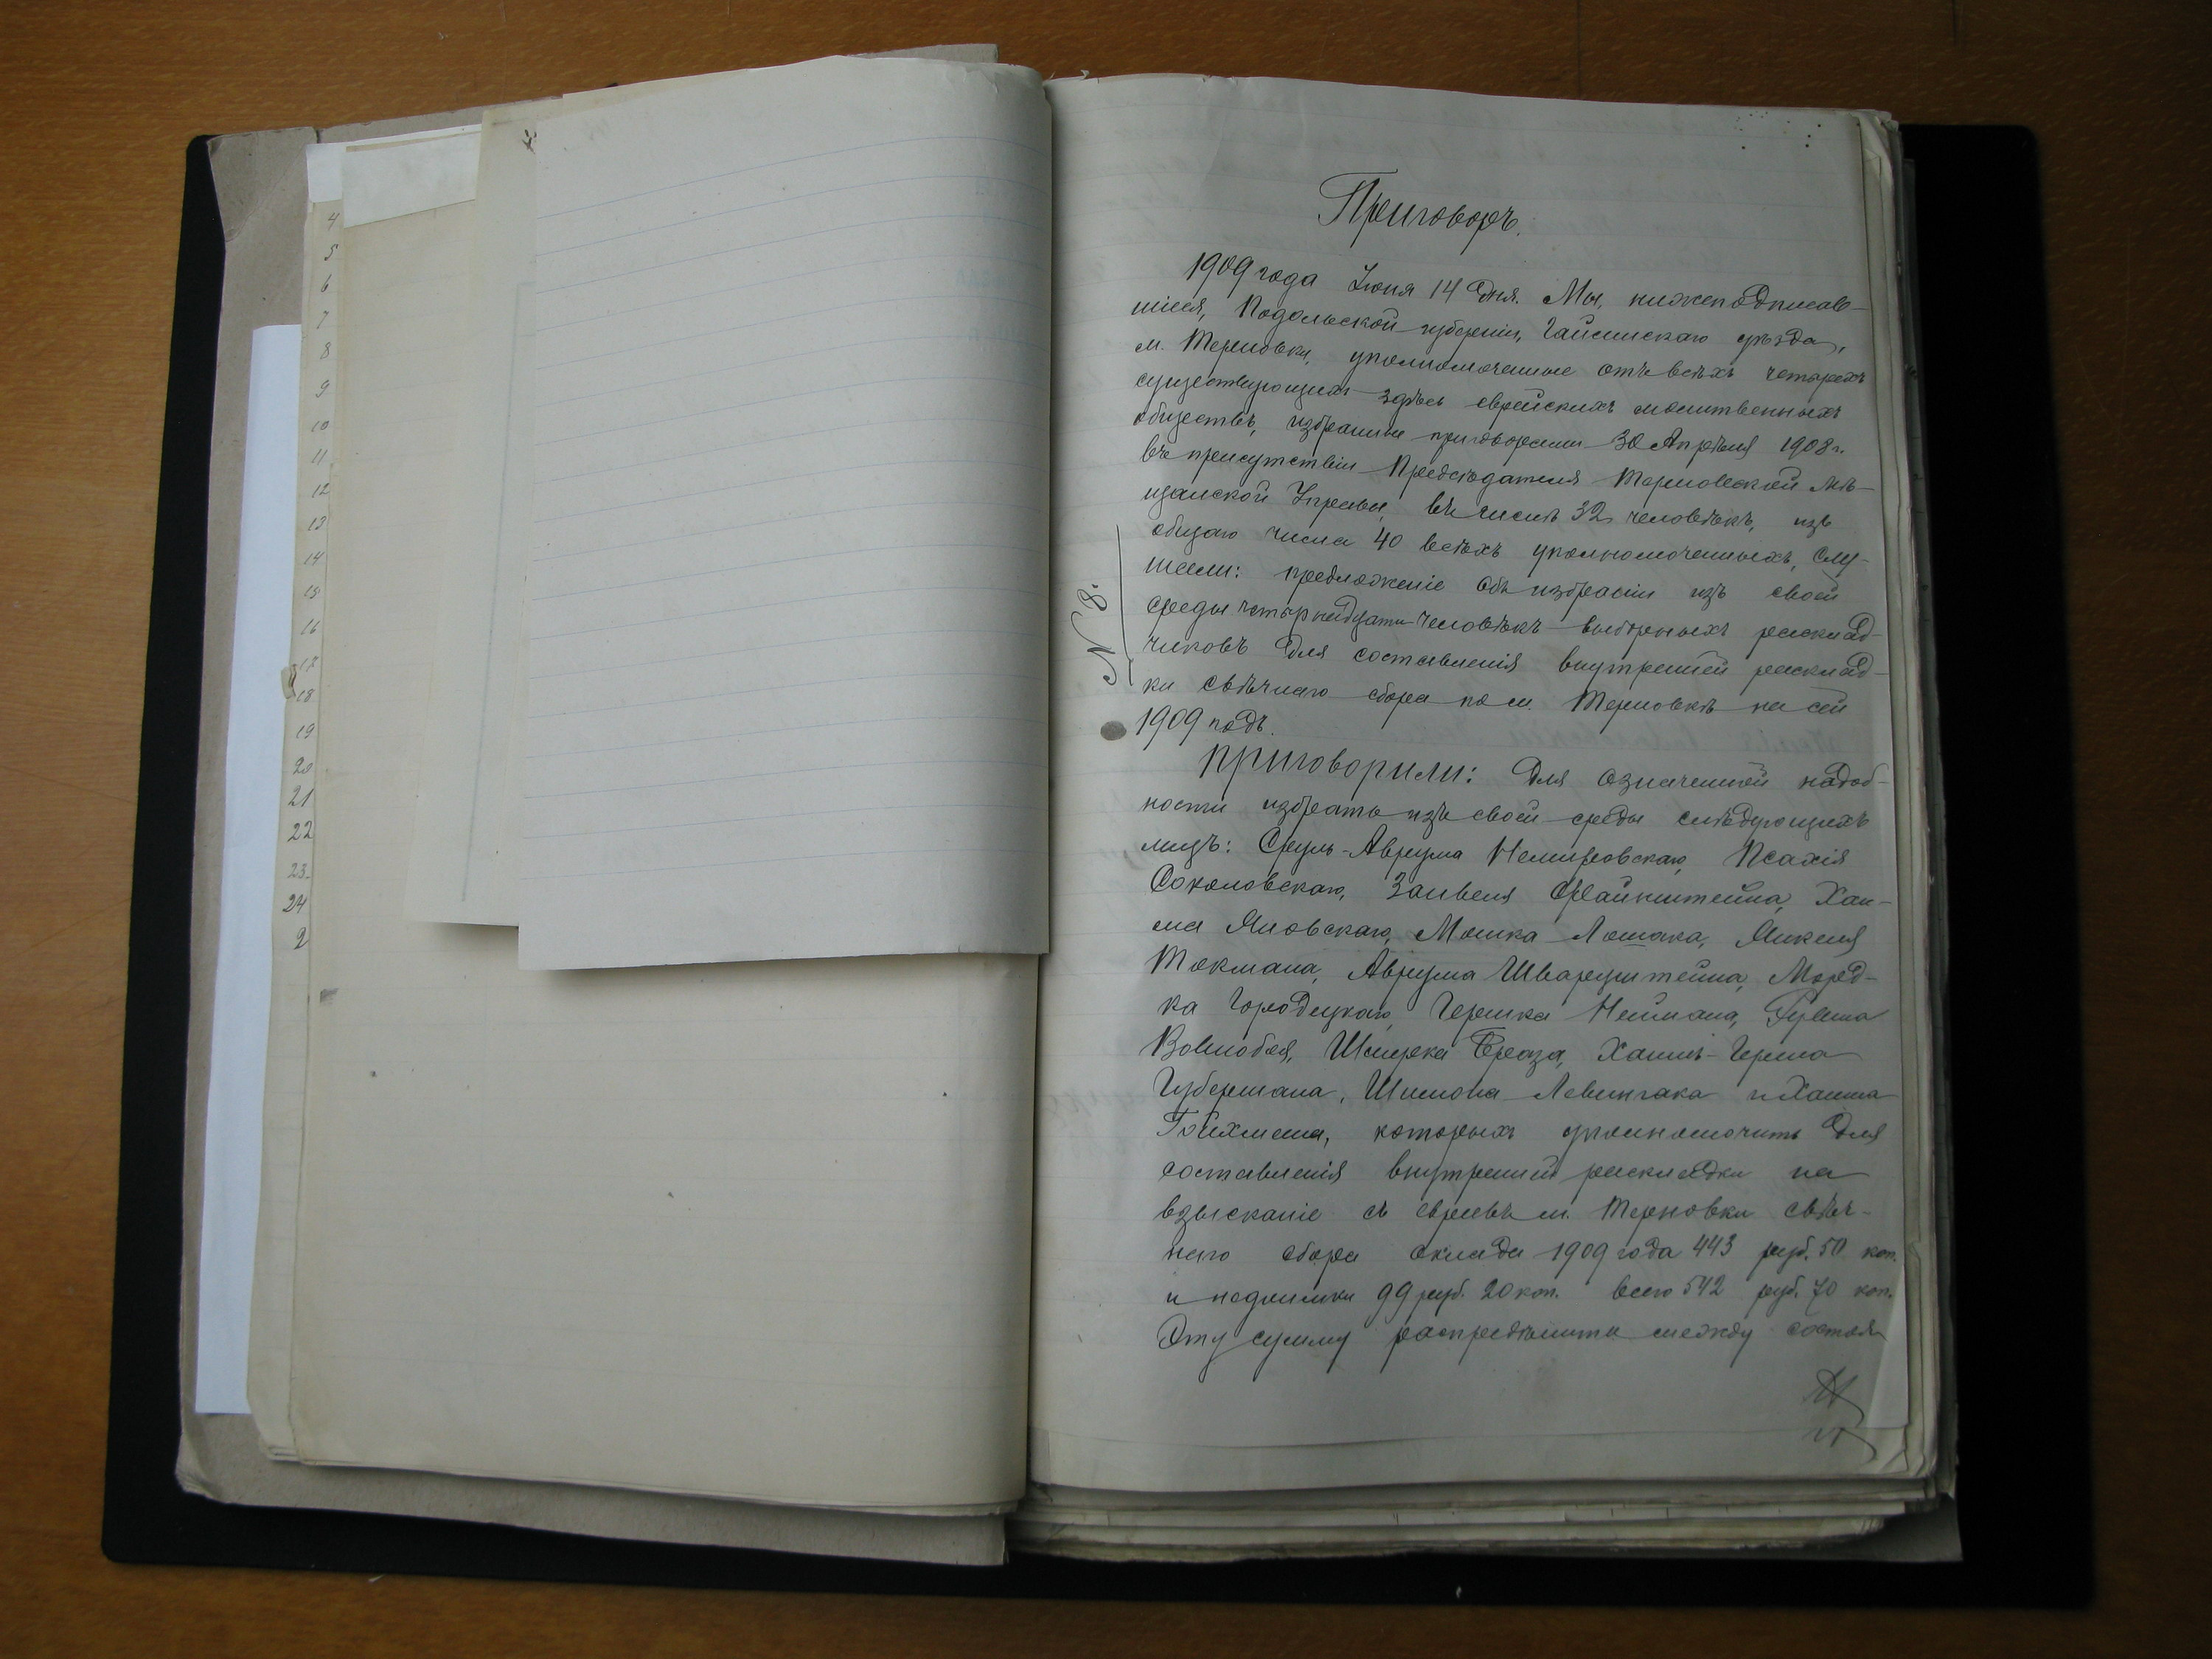 4
5
6
7
8
9
10
11
12
13
14
15
16
17
18
19
20
21
22
23
24
2
Приговоръ.
1909 года Іюня 14 дня. Мы, нижеподписав-
шіеся, Подольской губерніи, Гайсинскаго уѣзда,
м. Терновки, уполномоченные отъ всѣхъ четырехъ
существующихъ здѣсь еврейскихъ молитвенныхъ
обществъ, избранные приговорами 30 Апрѣля 1908 г.
въ присутствіи Предсѣдателя Терновской Мѣ-
щанской Управы, въ числѣ 32 человѣкъ, изъ
общаго числа 40 всѣхъ уполномоченныхъ, слу-
шали: предложеніе объ избраніи изъ своей
среды четырнадцати человѣкъ выборныхъ расклад-
чиковъ для составленія внутренней расклад-
ки свѣчнаго сбора по м. Терновкѣ на сей
1909 годъ.
N 8.
Приговорили: для означенной надоб-
ности избрать изъ своей среды слѣдующихъ
лицъ: Сруль-Аврума Немировскаго, Псахія
Соколовскаго, Занвеля Файнштейна, Хаи-
ма Яновскаго, Мошка Лошака, Янкеля
Токмана, Аврума Шварцштейна, Морд-
ка Городецкаго, Гершка Неймана,
Волнобоя, Шмерка Браза, Хаимъ-Герша
Губермана, Шимона Левинчака и Хаима
Гойхмана, которыхъ уполномочить для
составленія внутренней раскладки на
взысканіе съ евреевъ м. Терновки свѣч-
наго сбора оклада 1909 года 443 руб. 50 коп.
и недоимки 99 руб. 20 коп. всего 542 руб. 70 коп.
Эту сумму распредѣлить между состоя